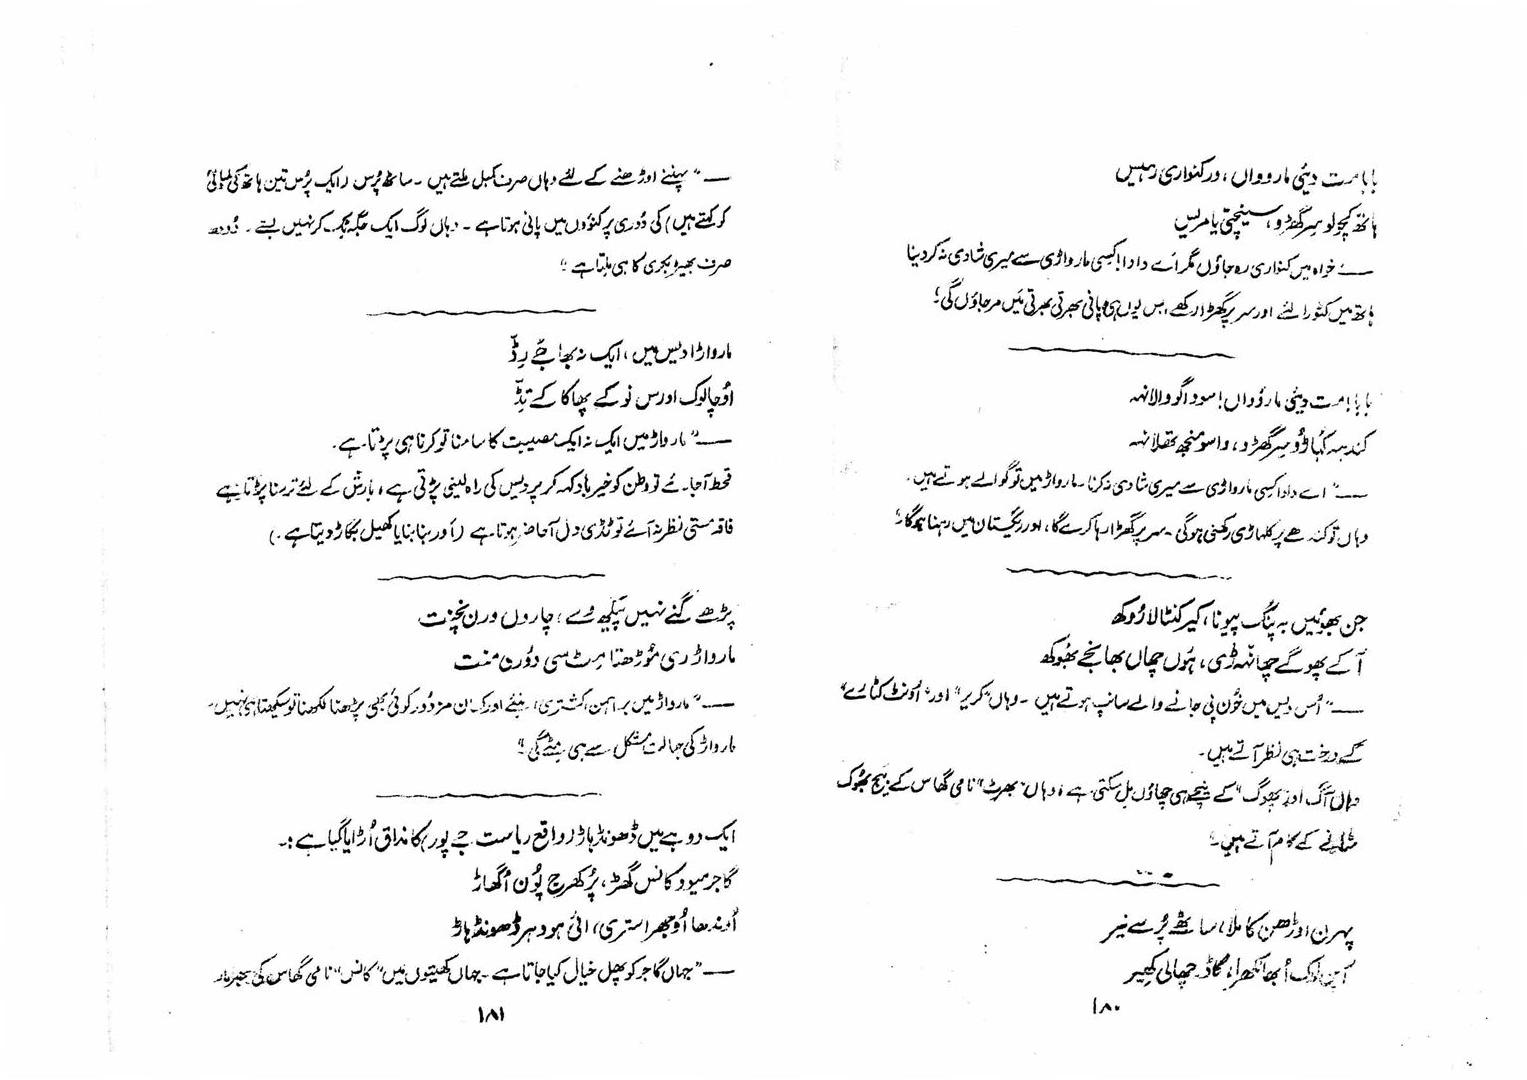 بابا مت دیئی ماروواں، ور کنواری رہیس
ہاتھ کچولو سر گھڑو، سینچتی یا مریس
— خواہ میں کنواری رہ جاؤں مگر اے دادا! کسی مارواڑی سے میری شادی نہ کر دینا
ہاتھ میں کٹورا لئے اور سر پر گھڑا رکھے، بس یوں ہی پانی بھرتی بھرتی میں مر جاؤں گی؛
بابا! مت دیئی مارؤواں! سودا گووالانہہ
کندہہ کہاڑو سر گھڑو، واسو منجھ تھلانہہ
—" اے دادا کسی مارواڑی سے میری شادی نہ کرنا۔ مارواڑ میں تو گوالے ہوتے ہیں۔
وہاں تو کندھے پر کلہاڑی رکھنی ہوگی۔ سر پر گھڑا رہا کرے گا، اور ریگستان میں رہنا ہوگا؛
جن بھوئیں بہ پنگ پیونا، کیر کنٹالا رُوکھ
آکے پھوگے چھانہہ ڑی، ہوں چھاں بھانجے بھُوکھ
—" اُس دیس میں خُون پی جانے والے سانپ ہوتے ہیں۔ وہاں "کریر" اور "اُونٹ کٹارے"
کے درخت ہی نظر آتے ہیں۔
وہاں آک اور پھوگ" کے نیچے ہی چھاؤں مل سکتی ہے، وہاں "بھرٹ" نامی گھاس کے بیج بھُوک
مٹانے کے کام آتے ہیں۔"
پہرن اوڑھن کاملا، ساٹھے پُرسے نیر
آپن لوک اُبھاکھرا، گاڈر چھالی کھیر
۱۸۰
—" پہننے اوڑھنے کے لئے وہاں صرف کمبل ملتے ہیں۔ ساٹھ پُرس (ایک پُرس تین ہاتھ کی لمبائی
کو کہتے ہیں) کی دُوری پر کنوؤں میں پانی ہوتا ہے۔ وہاں لوگ ایک جگہ ٹک کر نہیں بستے۔ دُودھ
صرف بھیڑ بکری کا ہی ملتا ہے؛
مارواڑا دیس میں، ایک نہ بھاجَے رِڈّ
اُوچالوک اورس نو کے پھاکا کے تِڈّ
—" مارواڑ میں ایک نہ ایک مصیبت کا سامنا تو کرنا ہی پڑتا ہے۔
قحط آجائے تو وطن کو خیر باد کہہ کر پردیس کی راہ لینی پڑتی ہے، بارش کے لئے ترسنا پڑتا ہے
فاقہ مستی نظر نہ آئے تو ٹڈی دل آ حاضر ہوتا ہے (اور بنا بنایا کھیل بگاڑ دیتا ہے۔)
پڑھے گنے نہیں پیکھ وے، چاروں ورن نچنت
مارواڑ ری مُوڑھتا مٹسی دوُرن منت
—" مارواڑ میں براہمن، کشتری، بنئے اور کسان مزدور کوئی بھی پڑھنا لکھنا تو سیکھتا ہی نہیں۔
مارواڑ کی جہالت مشکل سے ہی مٹے گی؛
ایک دوہے میں ڈھونڈہاڑ (واقع ریاست جے پور) کا مذاق اُڑایا گیا ہے:۔
گاجر میوو کانس گھڑ، پُرکھ رج پوُن اُگھاڑ
اُوندھا اُوجھر استری، ائی ہو دہر ڈھونڈہاڑ
—" جہاں گاجر کو پھل خیال کیا جاتا ہے۔ جہاں کھیتوں میں "کانس" نامی گھاس کی بھر مار
۱۸۱